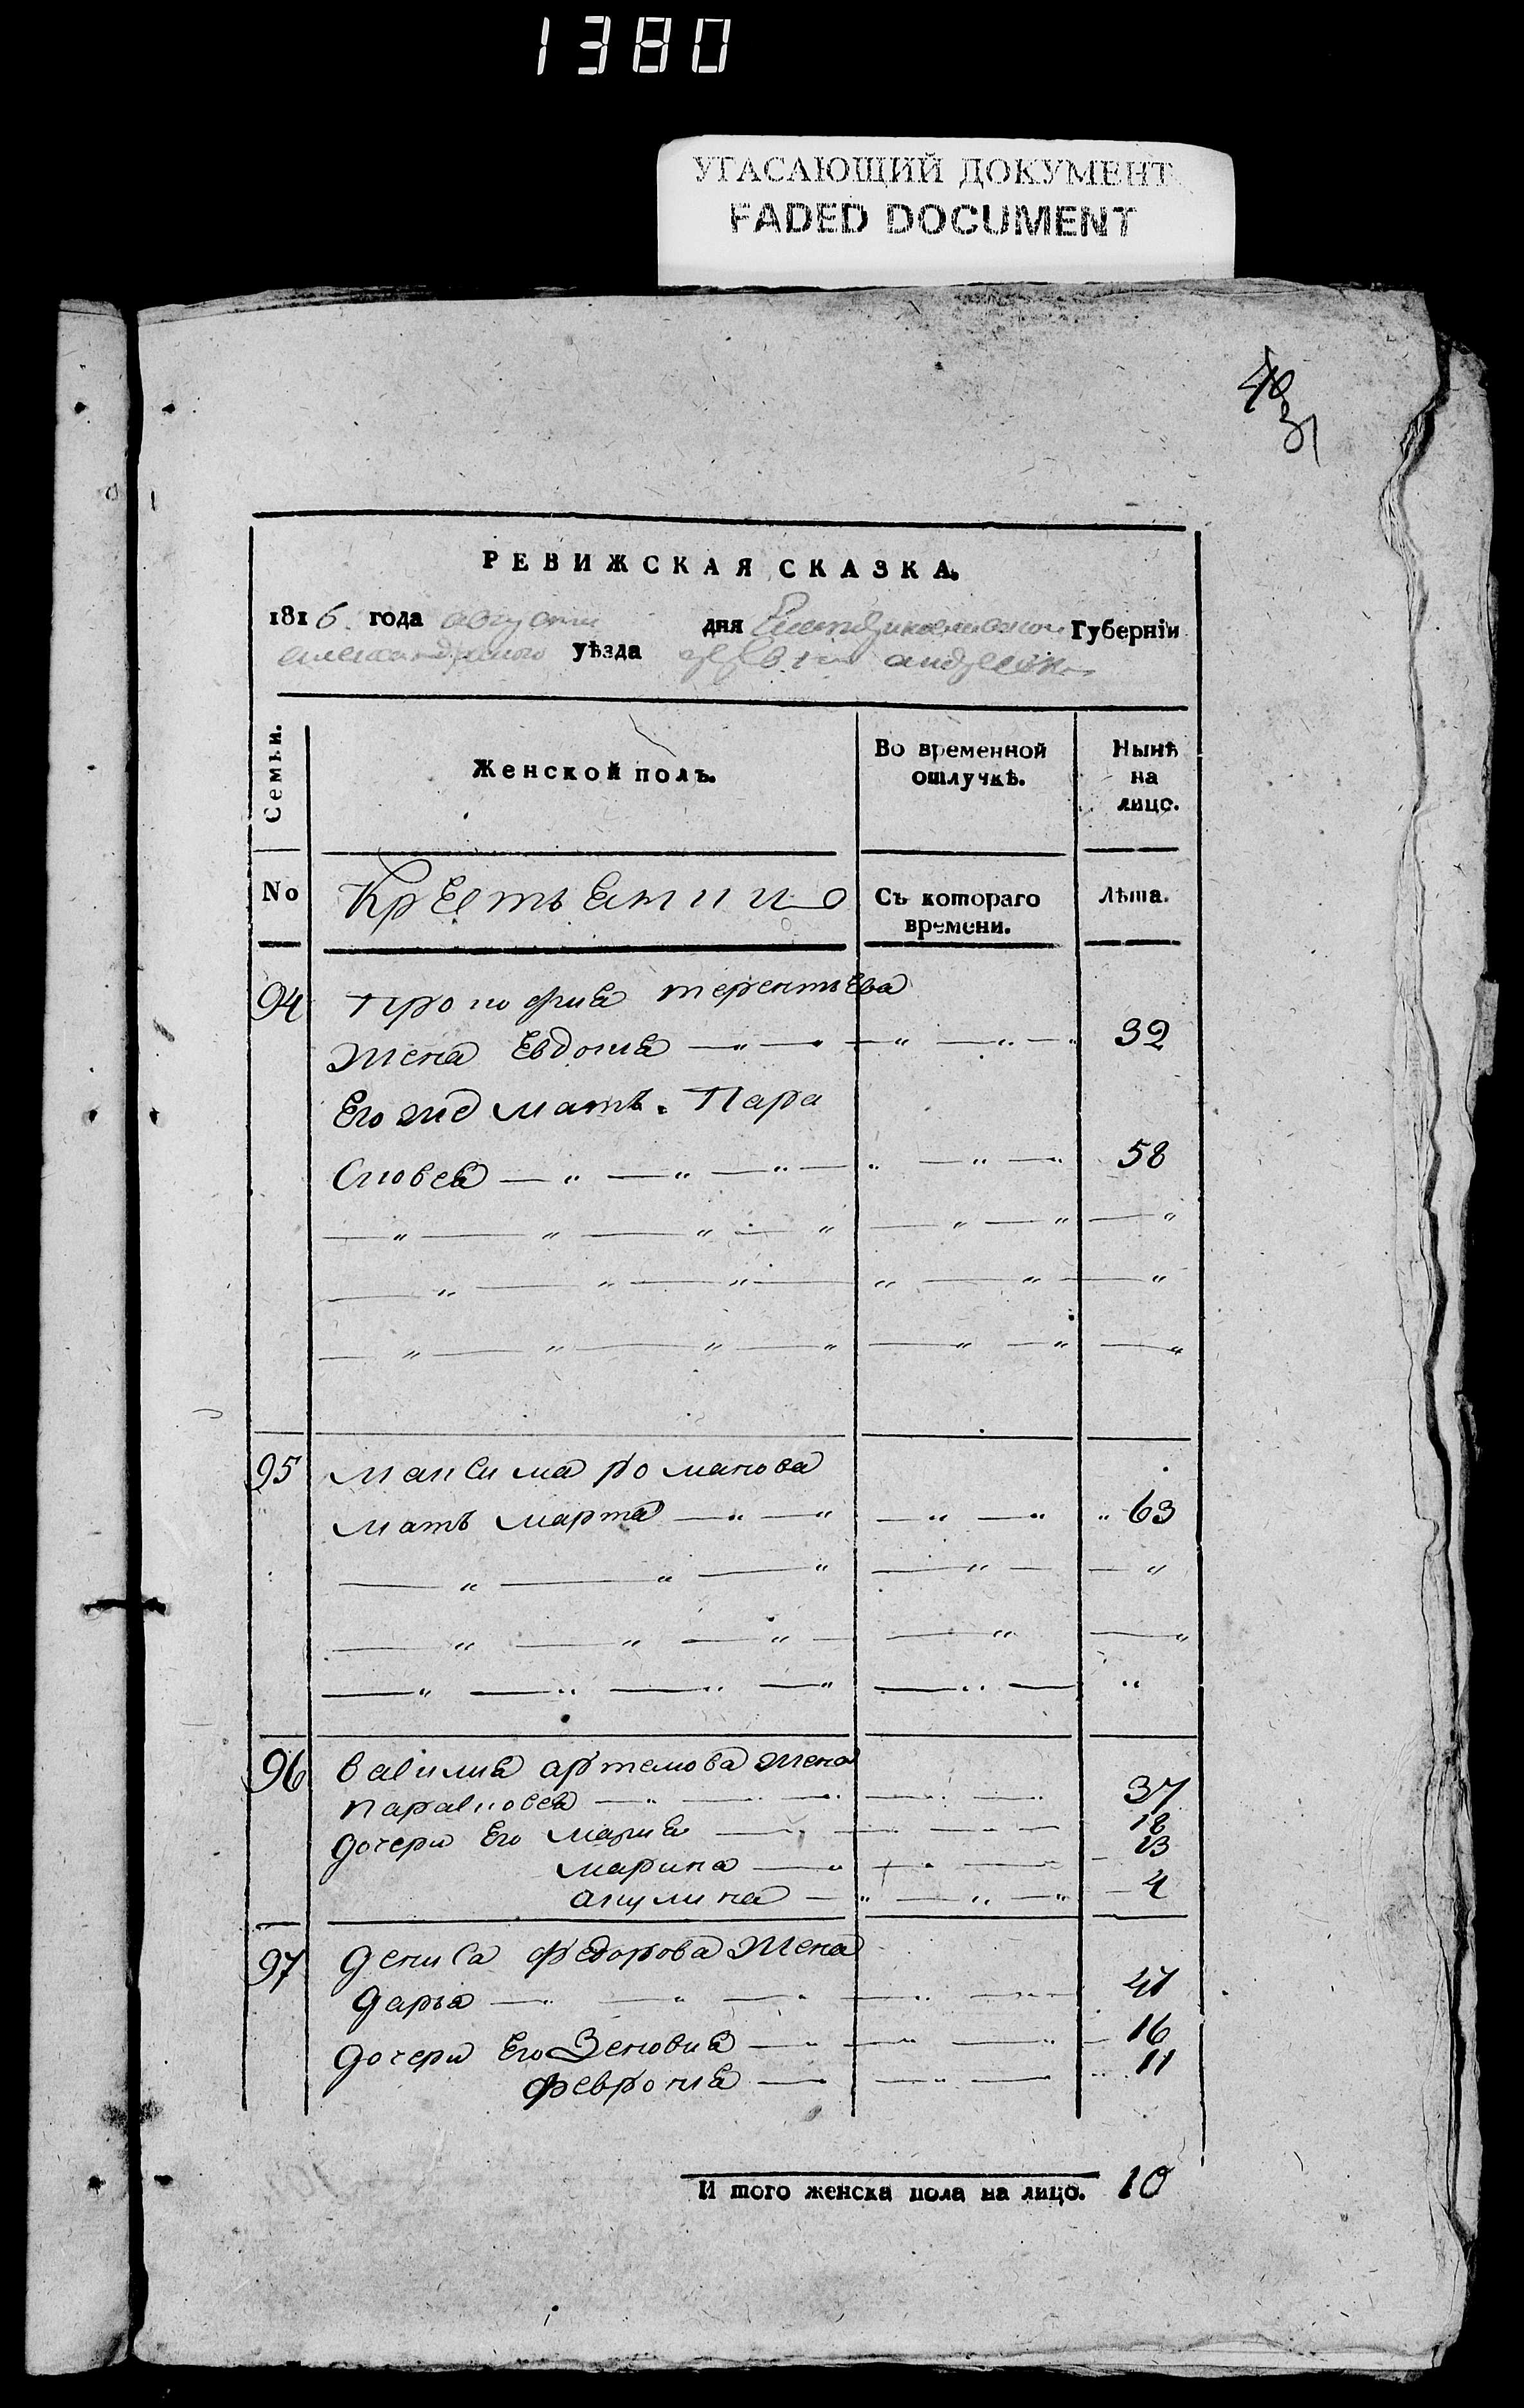 1380
УГАСАЮЩИЙ ДОКУМЕНТ
FADED DOCUMENT
31
РЕВИЖСКАЯ СКАЗКА.
1816 года августа дня Екатеринославской Губернїи
александрійского уѣзда
Семьи.
Женской полъ.
Во временной отлучкѣ.
Нынѣ на лицо.
No
Съ котораго времени.
Лѣта.
94 терентьева
жена Евдокия 32
Его же мать. Пара
сковея 58
95 максима романова
мать марта 63
96 василия артемова жена
парасковея 37
дочери Его мария 18
марина 13
акулина 4
97 дениса федорова жена
дарья 41
дочери Его Зеновия 16
феврония 11
И того женска пола на лицо. 10